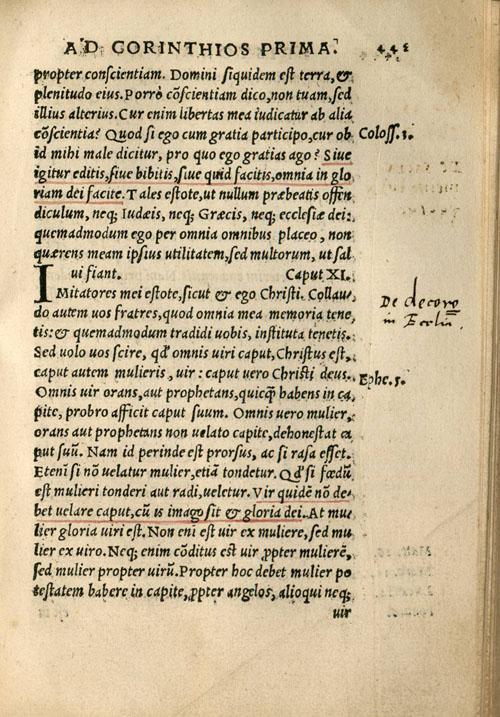 AD CORINTHIOS PRIMA.
propter conscientiam. Domini siquidem est terra, &
plenitudo eius. Porrò cōscientiam dico, non tuam, sed
illius alterius. Cur enim libertas mea iudicatur ab alia
cōscientia? Quod si ego cum gratia participo, cur ob
Coloss. 3.
id mihi male dicitur, pro quo ego gratias ago? Siue
igitur editis, siue bibitis, siue quid facitis, omnia in glo
riam dei facite. Tales estote, ut nullum præbeatis offen
diculum, neq; Iudæis, neq; Græcis, neq; ecclesiæ dei:
quemadmodum ego per omnia omnibus placeo, non
quærens meam ipsius utilitatem, sed multorum, ut sal
ui fiant. Caput XI.
IMitatores mei estote, sicut & ego Christi. Collau
De decoro
do autem uos fratres, quod omnia mea memoria tene
in Ecclia
tis: & quemadmodum tradidi uobis, instituta tenetis.
Sed uolo uos scire, qđ omnis uiri caput, Christus est,
caput autem mulieris, uir: caput uero Christi deus.
Ephe. 5.
Omnis uir orans, aut prophetans, quicq̄ habens in ca
pite, probro afficit caput suum. Omnis uero mulier,
orans aut prophetans non uelato capite, dehonestat ca
put suū. Nam id perinde est prorsus, ac si rasa esset.
Etenī si nō uelatur mulier, etiā tondetur. Qđ si fœdū
est mulieri tonderi aut radi, ueletur. Vir quidē nō de
bet uelare caput, cū is imago sit & gloria dei. At mu
lier gloria uiri est. Non enī est uir ex muliere, sed mu
lier ex uiro. Neq; enim cōditus est uir ꝓpter mulierē,
sed mulier propter uirū. Propter hoc debet mulier po
testatem habere in capite, ꝓpter angelos, alioqui neq;
uir